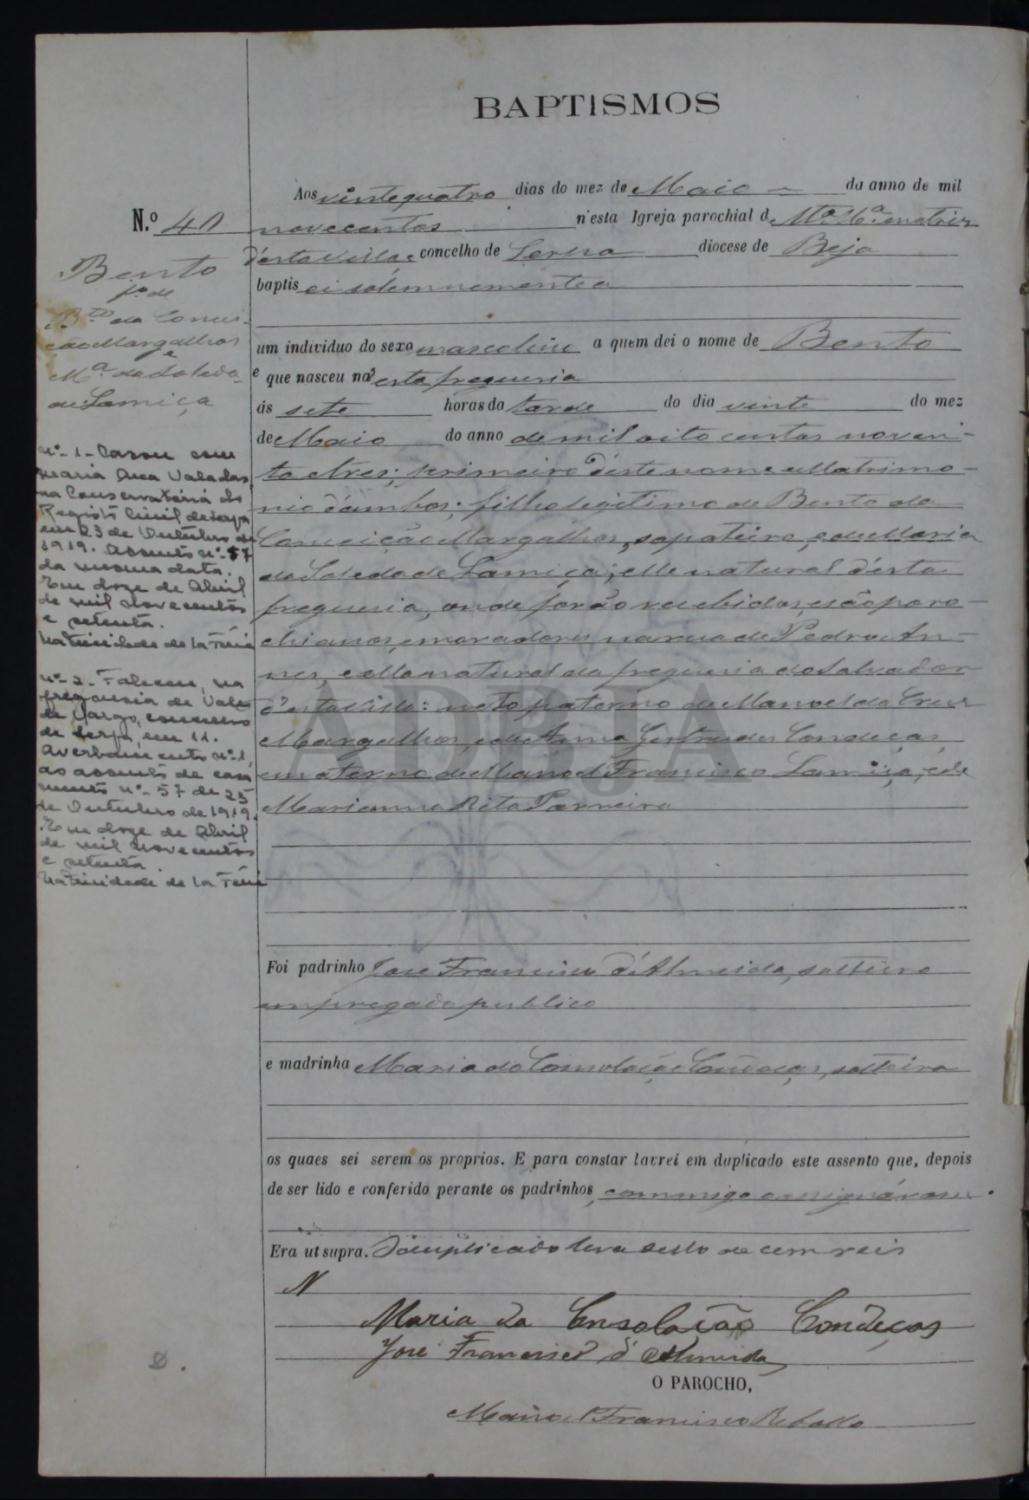 BAPTISMOS
Aos vinte quatro dias do mez de Maio da anno de mil
N.º 40 novecentos n'esta Igreja parochial d matriz
d'esta villa concelho de Serpa diocese de Beja
baptisei solemnemente a
um individuo do sexo masculino a quem dei o nome de Bento
e que nasceu n'esta freguesia
ás sete horas da tarde do dia vinte do mez
de Maio do anno de mil oito centos noven-
ta e tres; primeiro d'este nome e Matrimo-
nio d'ambos; filho legitimo de Bento da
Conceição Margalhos, sapateiro, e de Maria
da Soledade Lamiça; elle natural d'esta
freguesia, onde forão recebidos, e são paro-
chianos, e moradores na rua de Pedro An-
nes, e ella natural da freguesia do Salvador
d'esta villa: neto paterno de Manoel da Cruz
Margalhos, e de Anna Gertrudes Condeças
e materno de Manoel Francisco Lamiça, e de
Marianna Rita Parreira
Bento
fº de
Bto da Concei-
ção Margalhos
e
Mª da Soleda-
de Lamiça
nº 1 - Casou com
Maria Ana Valadas,
na Conservatória do
Registo Civil de Serpa
em 23 de Outubro de
1919. Assento nº 57
da mesma data.
Em doze de Abril
de mil novecentos
e setenta.
nº 2 - Faleceu, na
freguesia de Vale
de Vargo, concelho
de Serpa, em 11.
Averbamento nº 1,
ao assento de casa
mento nº 57 de 23
de Outubro de 1919.
Em doze de Abril
de mil novecentos
e setenta
ADBJA
Foi padrinho José Francisco d'Almeida, solteiro
empregado publico
e madrinha Maria da Consolação Condeças, solteira
os quaes sei serem os proprios. E para constar lavrei em duplicado este assento que, depois
de ser lido e conferido perante os padrinhos, commigo assignáram.
Era ut supra. O duplicado leva sello de cem reis
Maria da Consolação Condeças
José Francisco d'Almeida
O PAROCHO,
Manoel Francisco